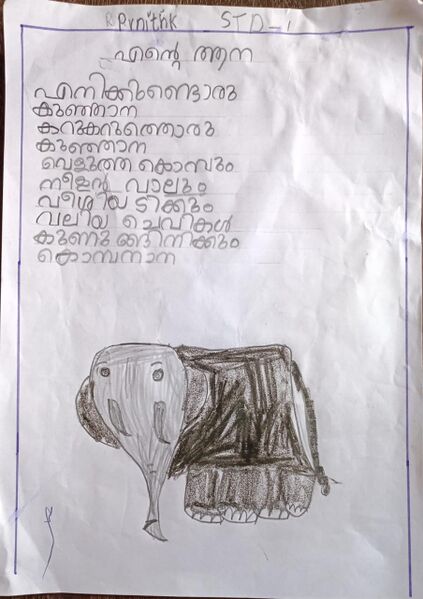 R Prnithk STD-1
എന്റെ ആന
എനിക്കുണ്ടൊരു
കുഞ്ഞാന
കറുകറുത്തൊരു
കുഞ്ഞാന
വെളുത്ത കൊമ്പും
നീളൻ വാലും
വീശിയടിക്കും
വലിയ ചെവികൾ
കുണുങ്ങിനിക്കും
കൊമ്പനാന